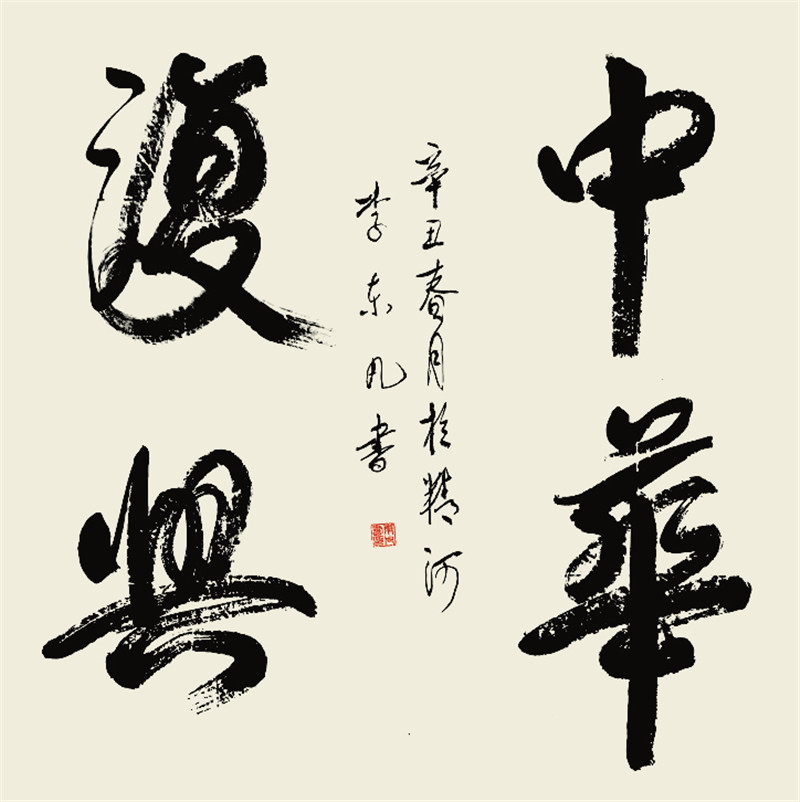 中華
復興
辛丑春月於精河
李东凡書